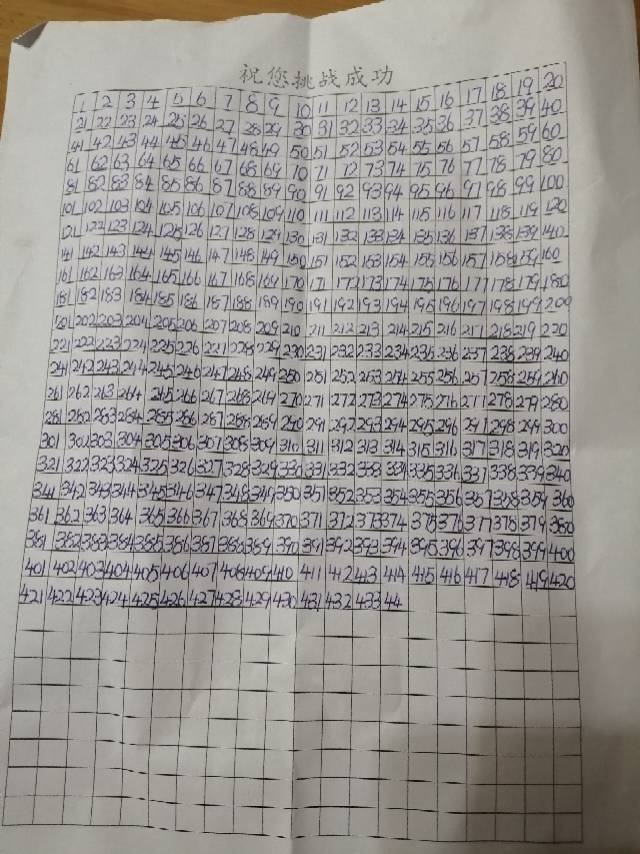 祝您挑战成功
1 2 3 4 5 6 7 8 9 10 11 12 13 14 15 16 17 18 19 20
21 22 23 24 25 26 27 28 29 30 31 32 33 34 35 36 37 38 39 40
41 42 43 44 45 46 47 48 49 50 51 52 53 54 55 56 57 58 59 60
61 62 63 64 65 66 67 68 69 70 71 72 73 74 75 76 77 78 79 80
81 82 83 84 85 86 87 88 89 90 91 92 93 94 95 96 97 98 99 100
101 102 103 104 105 106 107 108 109 110 111 112 113 114 115 116 117 118 119 120
121 122 123 124 125 126 127 128 129 130 131 132 133 134 135 136 137 138 139 140
141 142 143 144 145 146 147 148 149 150 151 152 153 154 155 156 157 158 159 160
161 162 163 164 165 166 167 168 169 170 171 172 173 174 175 176 177 178 179 180
181 182 183 184 185 186 187 188 189 190 191 192 193 194 195 196 197 198 199 200
201 202 203 204 205 206 207 208 209 210 211 212 213 214 215 216 217 218 219 220
221 222 223 224 225 226 227 228 229 230 231 232 233 234 235 236 237 238 239 240
241 242 243 244 245 246 247 248 249 250 251 252 253 254 255 256 257 258 259 260
261 262 263 264 265 266 267 268 269 270 271 272 273 274 275 276 277 278 279 280
281 282 283 284 285 286 287 288 289 290 291 292 293 294 295 296 297 298 299 300
301 302 303 304 305 306 307 308 309 310 311 312 313 314 315 316 317 318 319 320
321 322 323 324 325 326 327 328 329 330 331 332 333 334 335 336 337 338 339 340
341 342 343 344 345 346 347 348 349 350 351 352 353 354 355 356 357 358 359 360
361 362 363 364 365 366 367 368 369 370 371 372 373 374 375 376 377 378 379 380
381 382 383 384 385 386 387 388 389 390 391 392 393 394 395 396 397 398 399 400
401 402 403 404 405 406 407 408 409 410 411 412 413 414 415 416 417 418 419 420
421 422 423 424 425 426 427 428 429 430 431 432 433 44